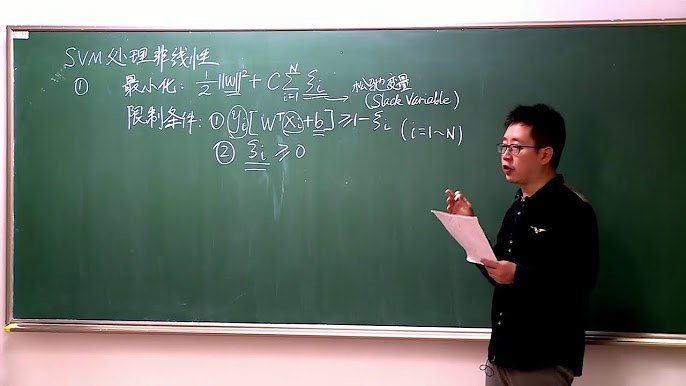 SVM处理非线性
① 最小化: 1/2||W||² + C∑_{i=1}^{N} ξi → 松弛变量
(Slack Variable)
限制条件: ① yi[WᵀXi+b] ≥ 1-ξi (i=1~N)
② ξi ≥ 0